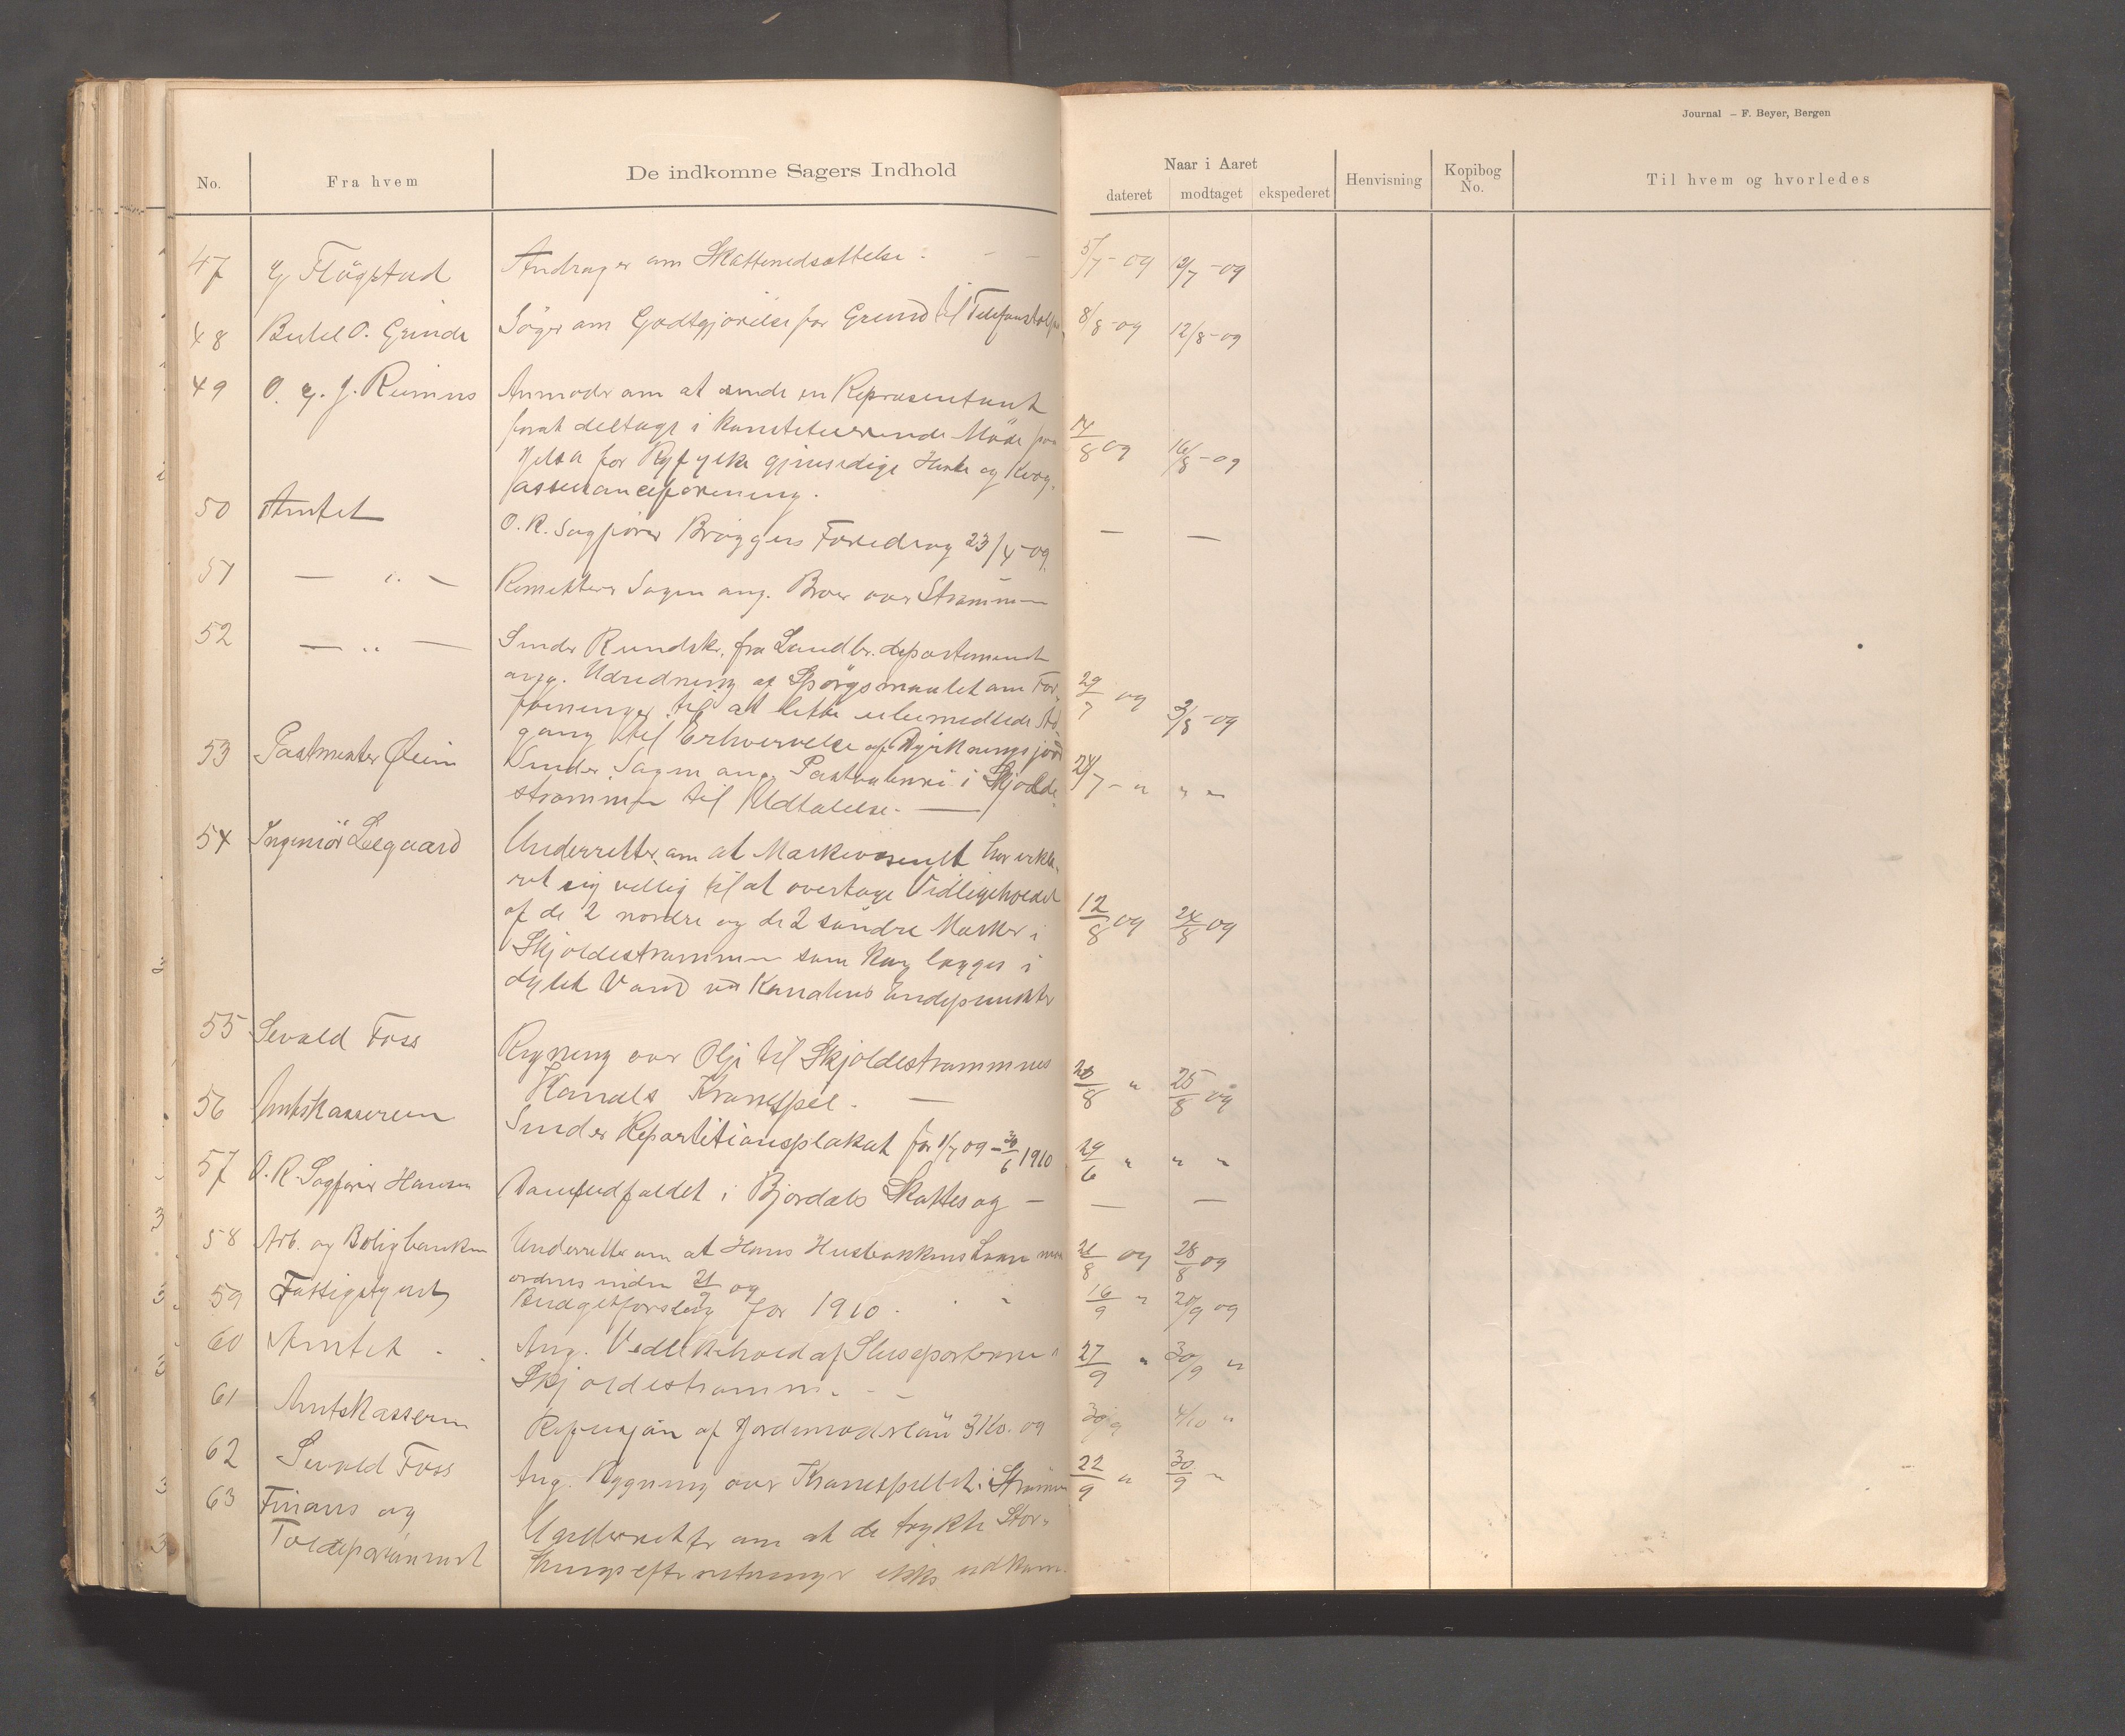 Journal – F. Beyer, Bergen
No.
Fra hvem
De indkomne Sagers Indhold
Naar i Aaret
dateret
modtaget
ekspederet
Henvisning
Kopibog
No.
Til hvem og hvorledes
47 Flögstad Andrager om Skattenedsættelse. 5/7-09 12/7-09
48 Bertel O. Grinde Söger om Godtgjörelse for Grund til Telefonstolper 8/8-09 12/8-09
49 O. J. Reimers Anmoder om at sende en Repræsentant
forat deltage i konstituerende Möde paa
Jelsa for Ryfylke gjensidige Heste og Kvæg- 14/8 09 16/8-09
assuranceforening.
50 Amtet O. R. Sagförer Bröggers Foredrag 23/4-09. — —
51 — " — Remitterer Sagen ang. Broer over Strømmen
52 — " — Sender Rundskr. fra Landbr. departementet
ang. Udredning af Spörgsmaalet om For-
föininger til at lette ubemidlede Ad- 29/7 09 3/8-09
gang til Erhvervelse af Dyrkningsjord
53 Postmester Øien Sender Sagen ang. Postaabneri i Skjolde- 24/7 - " " "
strømmen til Udtalelse. —
54 Ingeniör Leegaard Underretter om at Merkevæsenet har erklæ-
ret sig villig til at overtage Vedligeholdet
af de 2 nordre og de 2 söndre Merker i 12/8 09 24/8 09
Skjoldestrømmen som lægges i
dybet Vand ved Kanalens Endepunkter
55 Sevald Foss Regning over Olje til Skjoldestrømmens 20/8 " 25/8 09
Kanals Kranspel. —
56 Amtskassereren Sender Repartitionsplakat for 1/7 09 – 30/6 1910 29/6 " " "
57 O. R. Sagförer Hansen Domsudfaldet i Bjordals Skattesag — — —
58 Arb. og Boligbanken Underretter om at Hans Husbankens Laan maa 21/8 09 28/8 09
ordnes inden 21/9 09
59 Fattigstyret Budgetforslag for 1910. 16/9 " 20/9 09
60 Amtet Ang. Vedlikehold af Sluseportene i 27/9 " 30/9 "
Skjoldestrømm.
61 Amtskasseren Refusjon af Jordmoderlön 3 Kv. 09 30/9 4/10 "
62 Sevald Foss Ang. Regning over Kranespillet i Strømmen 22/9 " 30/9 "
63 Finans og Underretter om at de trykte
Tolddepartement efterretninger ikke udkom.